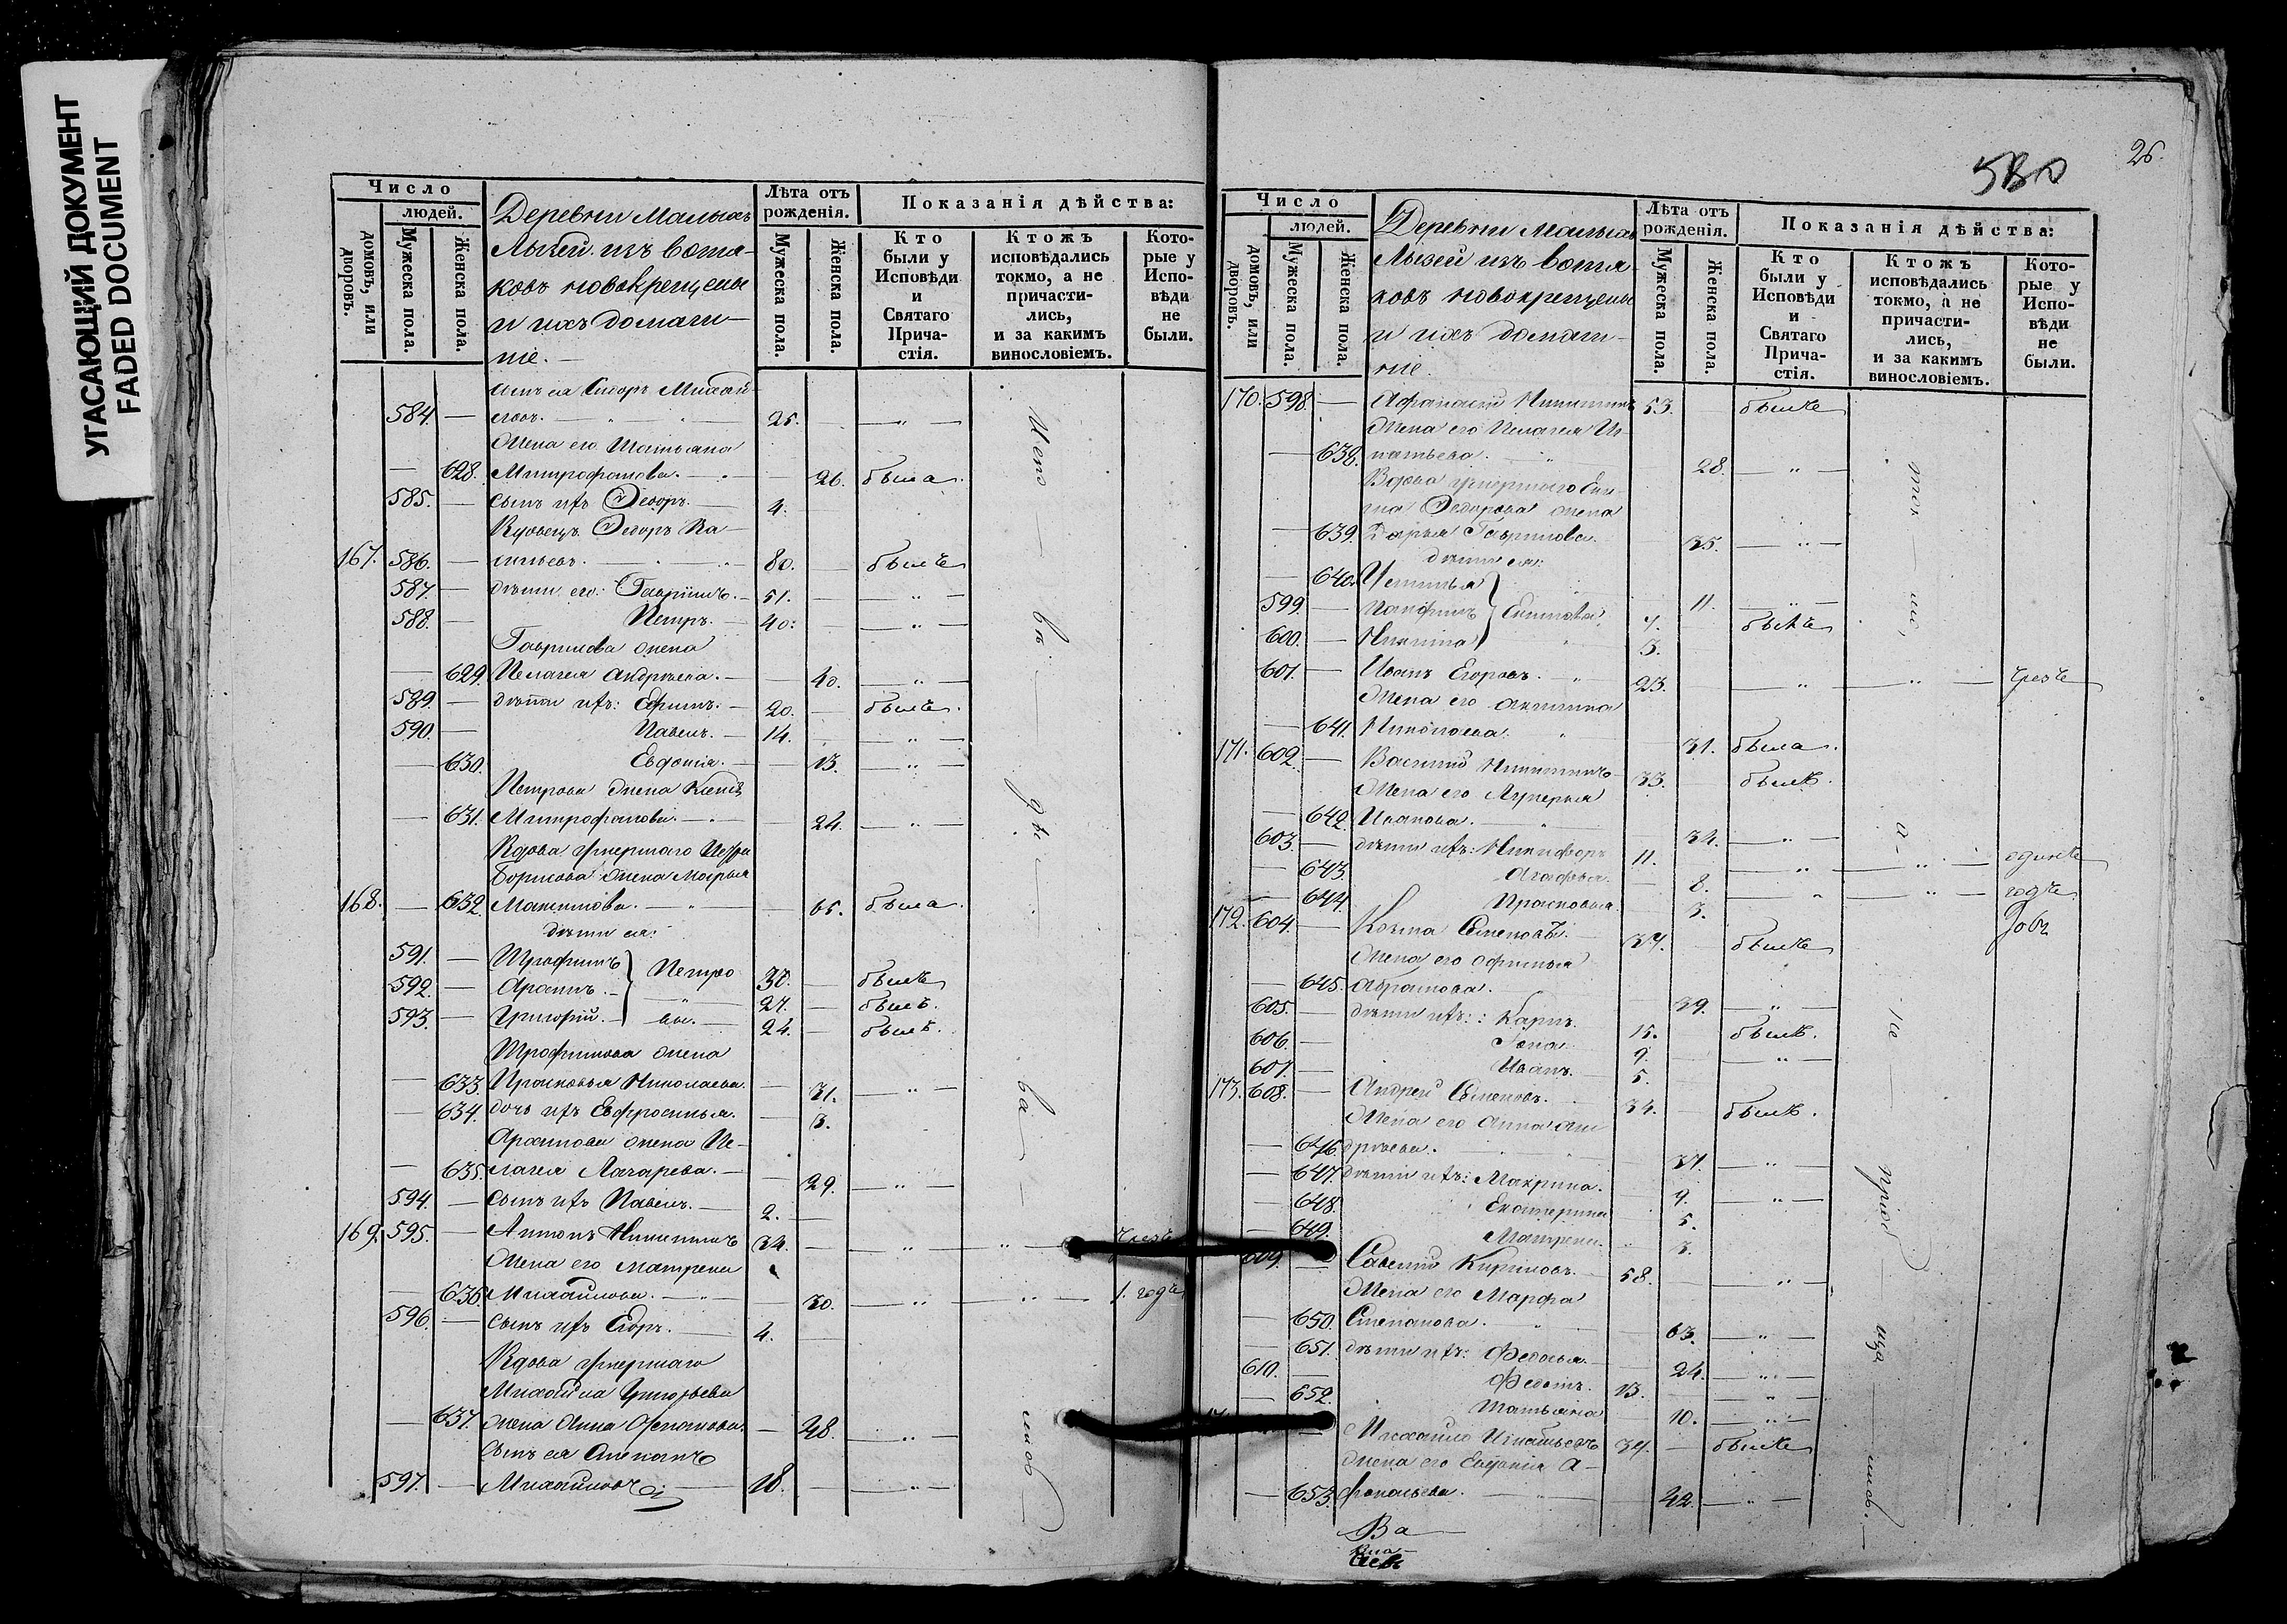 УГАСАЮЩИЙ ДОКУМЕНТ
FADED DOCUMENT
Число
людей.
домовъ, или дворовъ.
Мужеска пола.
Женска пола.
Деревни Малыхъ
Лызей изъ вотя-
ковъ новокрещены
и ихъ домаш-
ніе.
Лѣта отъ рожденія.
Мужеска пола.
Женска пола.
Показанія дѣйства:
Кто были у Исповѣди и Святаго Прича-стія.
Ктожъ исповѣдались токмо, а не причасти-лись, и за какимъ винословіемъ.
Кото-рые у Испо-вѣди не были.
сынъ ея Сидоръ Михай-
584. — ловъ. 25. — „ —
Жена его Татьяна
— 628. Митрофанова. — 26. была.
585. — сынъ ихъ Ѳедоръ. 4.
Вдовецъ Ѳедоръ Ва-
167. 586. — сильевъ. 80. — былъ
587. — дѣти его: Гавріилъ. 51. — „ —
588. — Петръ. 40. — „ —
Гаврилова жена
— 629. Пелагея Андрѣева. — 40. — „ —
589. — дѣти ихъ: Ефимъ. 20. — былъ.
590. — Павелъ. 14. — „ —
— 630. Евдокія. — 13. — „ —
Петрова жена
— 631. Митрофанова. — 24. — „ —
Вдова умершаго Петра
Борисова жена Марья
168. — 632. Максимова. — 65. была.
дѣти ея:
591. — Трофимъ 30. — былъ
592. — Архипъ. Петро 27. — былъ.
593. — Григорій. вы. 24. — былъ.
Трофимова жена
— 633. Прасковья Николаева. — 31. — „ —
— 634. дочь ихъ Евфросинья. — 3.
Архипова жена Пе-
— 635. лагея Лазарева. — 29. — „ —
594. — сынъ ихъ Павелъ. 2.
169. 595. — Антонъ Никитинъ 34. — „ — „ — чрезъ
Жена его Матрена
— 636. Михайлова. — 30. — „ — „ — 1. годъ
596. — сынъ ихъ Егоръ. 4.
Вдова умершаго
Михаила Григорьева
— 637. жена Анна Степанова. — 48. — „ —
сынъ ея Степанъ
597. — Михайловъ 18. — „ —
26.
Число
людей.
домовъ, или дворовъ.
Мужеска пола.
Женска пола.
Деревни Малыхъ
Лызей изъ вотя-
ковъ новокрещены
и ихъ домаш-
ніе.
Лѣта отъ рожденія.
Мужеска пола.
Женска пола.
Показанія дѣйства:
Кто были у Исповѣди и Святаго Прича-стія.
Ктожъ исповѣдались токмо, а не причасти-лись, и за какимъ винословіемъ.
Кото-рые у Испо-вѣди не были.
170. 598. — Афанасій Никитинъ 53. — былъ
Жена его Пелагея Иг-
— 638. натьева. — 28. — „ —
Вдова умершаго
Ѳедорова жена
— 639. Дарья Гаврилова. — 35. — „ —
дѣти ея:
— 640. Устинья — 11. — „ —
599. — Панфилъ 7. — былъ
600. — Никита 3.
601. — Иванъ Егоровъ. 23. — „ — „ — чрезъ
Жена его Акилина
— 641. Николаева. — 31. была.
171. 602. — Василій Никитинъ 33. — былъ.
Жена его Лукерья
— 642. Иванова. — 34. — „ —
603. — дѣти ихъ: Никифоръ 11. — „ — „ — одинъ
— 643. Агафья. — 8. — „ — „ — годъ
— 644. Прасковья. — 3.
172. 604. — Козма Семеновъ. 37. — былъ
Жена его Офимья
— 645. Абрамова. — 39. — „ —
605. — дѣти ихъ: Карпъ. 15. — былъ.
606. — 9. — „ —
607. — Иванъ. 5.
173. 608. — Андрей Семеновъ. 34. — былъ.
Жена его Анна Ан
— 646. дрѣева. — 37. — „ —
— 647. дѣти ихъ: Макрина. — 9. — „ —
— 648. Екатерина — 5.
— 649. Матрена. — 3.
609. — Савелій Кириловъ. 58. — „ —
Жена его Марфа
— 650. Степанова. — 63. — „ —
— 651. дѣти ихъ: Федосья. — 24. — „ —
610. — Федотъ. 13. — „ —
— 652. Татьяна — 10. — „ —
Михайло Игнатьевъ 37. — былъ
Жена его Евгенія А-
— 653. фонасьева. — 42. — „ —
Ва